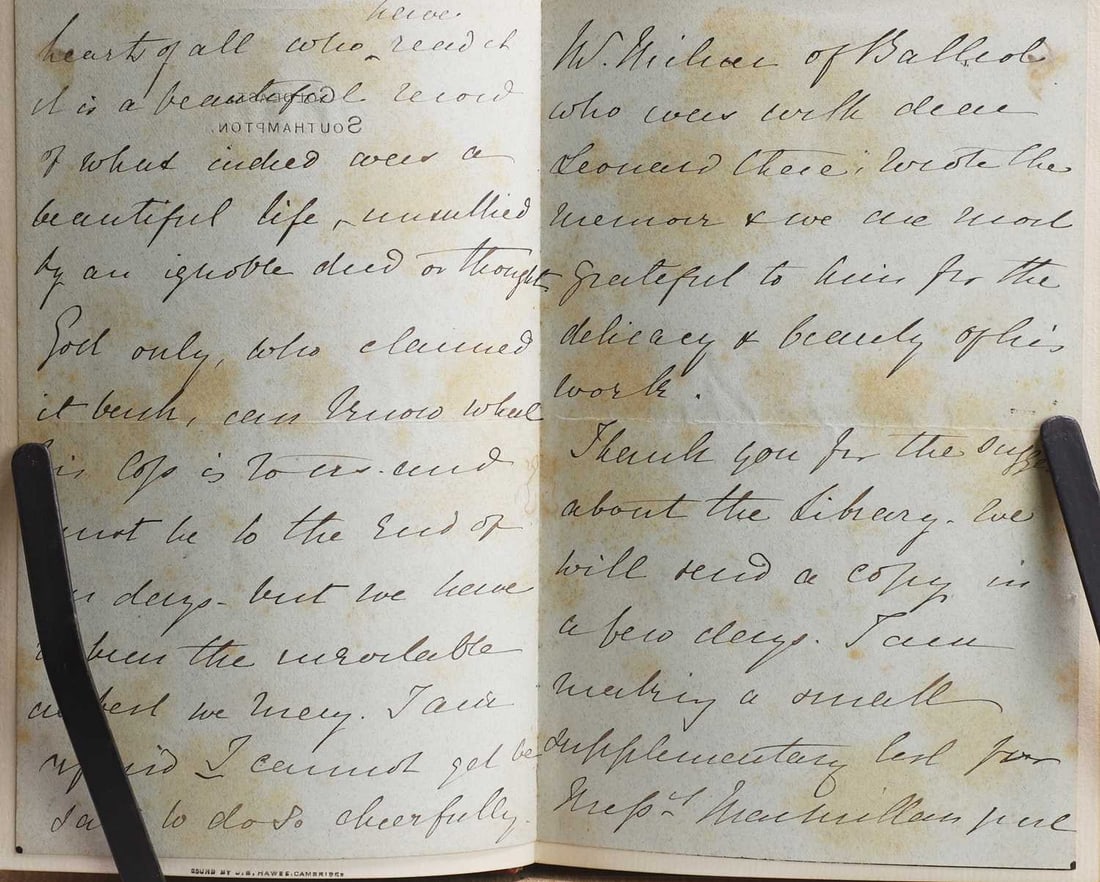 have
hearts of all who ^ read it
it is a beautiful record
SOUTHAMPTON.
of what indeed was a
beautiful life, unsullied
by an ignoble deed or thought
God only, who claimed
it back, can know what
his loss is to us. and
must be to the End of
days - but we have
been the inevitable
best we may. I am
afraid I cannot get be
to do so cheerfully.
Mr. Milner of Balliol
who was with dear
Leonard there, wrote the
memoir & we are most
grateful to him for the
delicacy & beauty of his
work.
Thank you for the
about the Library. We
will send a copy in
a few days. I am
making a small
supplementary list for
Messrs Macmillan just
BOUND BY J.S. HAWES, CAMBRIDGE.